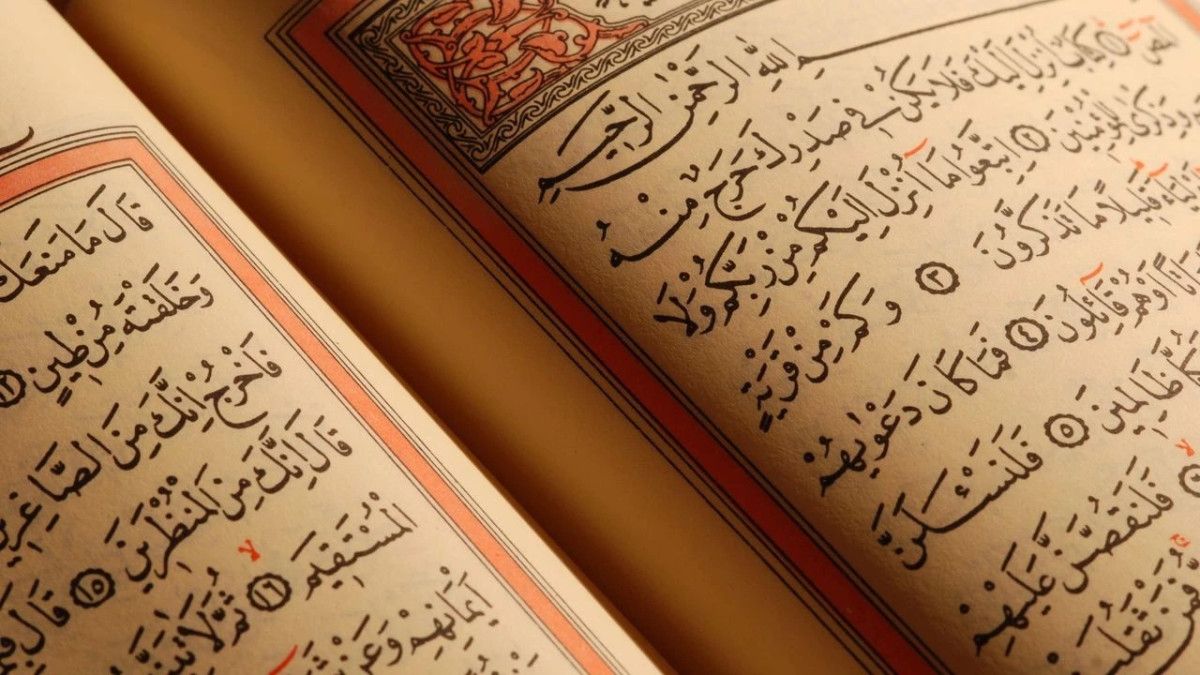 اللّٰهِ الرَّحْمٰنِ الرَّحِيمِ
المص ١ كِتَابٌ اُنْزِلَ اِلَيْكَ فَلَا يَكُنْ فِي صَدْرِكَ حَرَجٌ مِنْهُ
وَذِكْرٰى لِلْمُؤْمِنِينَ ٢ اِتَّبِعُوا مَٓا اُنْزِلَ اِلَيْكُمْ مِنْ رَبِّكُمْ وَلَا
قَلِيلًا مَا تَذَكَّرُونَ ٣ وَكَمْ مِنْ قَرْيَةٍ
اَوْ هُمْ قَٓائِلُونَ ٤ فَمَا كَانَ دَعْوٰيهُمْ
ظَالِمِينَ ٥ فَلَنَسْـَٔلَنَّ
فَلَنَقُصَّنَّ عَلَيْهِمْ
ثَقُلَتْ
قَالَ مَا مَنَعَكَ
وَخَلَقْتَهُ مِنْ طِينٍ ١٢
فَاخْرُجْ اِنَّكَ مِنَ الصَّاغِرِينَ
قَالَ اِنَّكَ مِنَ الْمُنْظَرِينَ ١٥ قَالَ
الْمُسْتَقِيمَ ١٦ ثُمَّ
اَيْمَانِهِمْ وَعَنْ